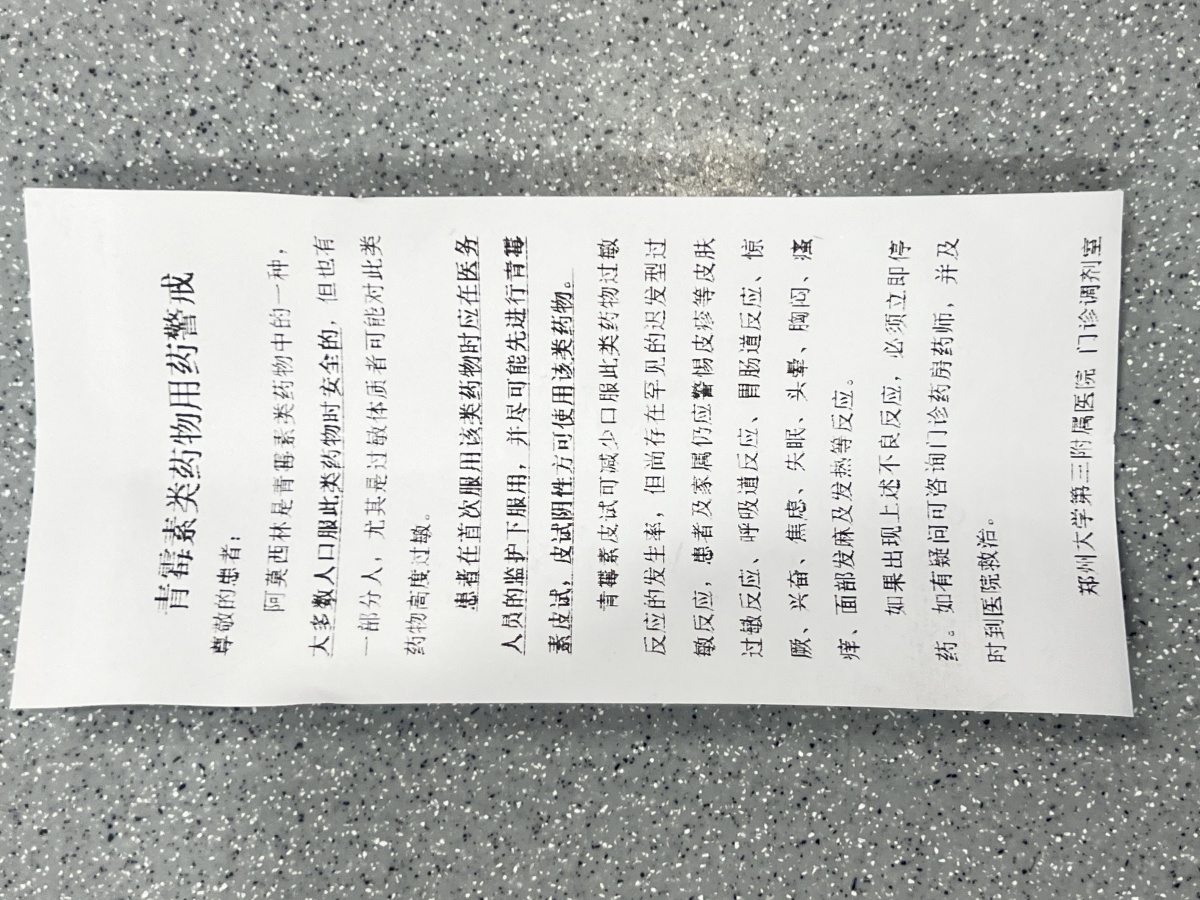 青霉素类药物用药警戒
尊敬的患者：
阿莫西林是青霉素类药物中的一种，
大多数人口服此类药物时安全的，但也有
一部分人，尤其是过敏体质者可能对此类
药物高度过敏。
患者在首次服用该类药物时应在医务
人员的监护下服用，并尽可能先进行青霉
素皮试，皮试阴性方可使用该类药物。
青霉素皮试可减少口服此类药物过敏
反应的发生率，但尚存在罕见的迟发型过
敏反应，患者及家属仍应警惕皮疹等皮肤
过敏反应、呼吸道反应、胃肠道反应、惊
厥、兴奋、焦虑、失眠、头晕、胸闷、瘙
痒、面部发麻及发热等反应。
如果出现上述不良反应，必须立即停
药。如有疑问可咨询门诊药房药师，并及
时到医院救治。
郑州大学第三附属医院 门诊调剂室